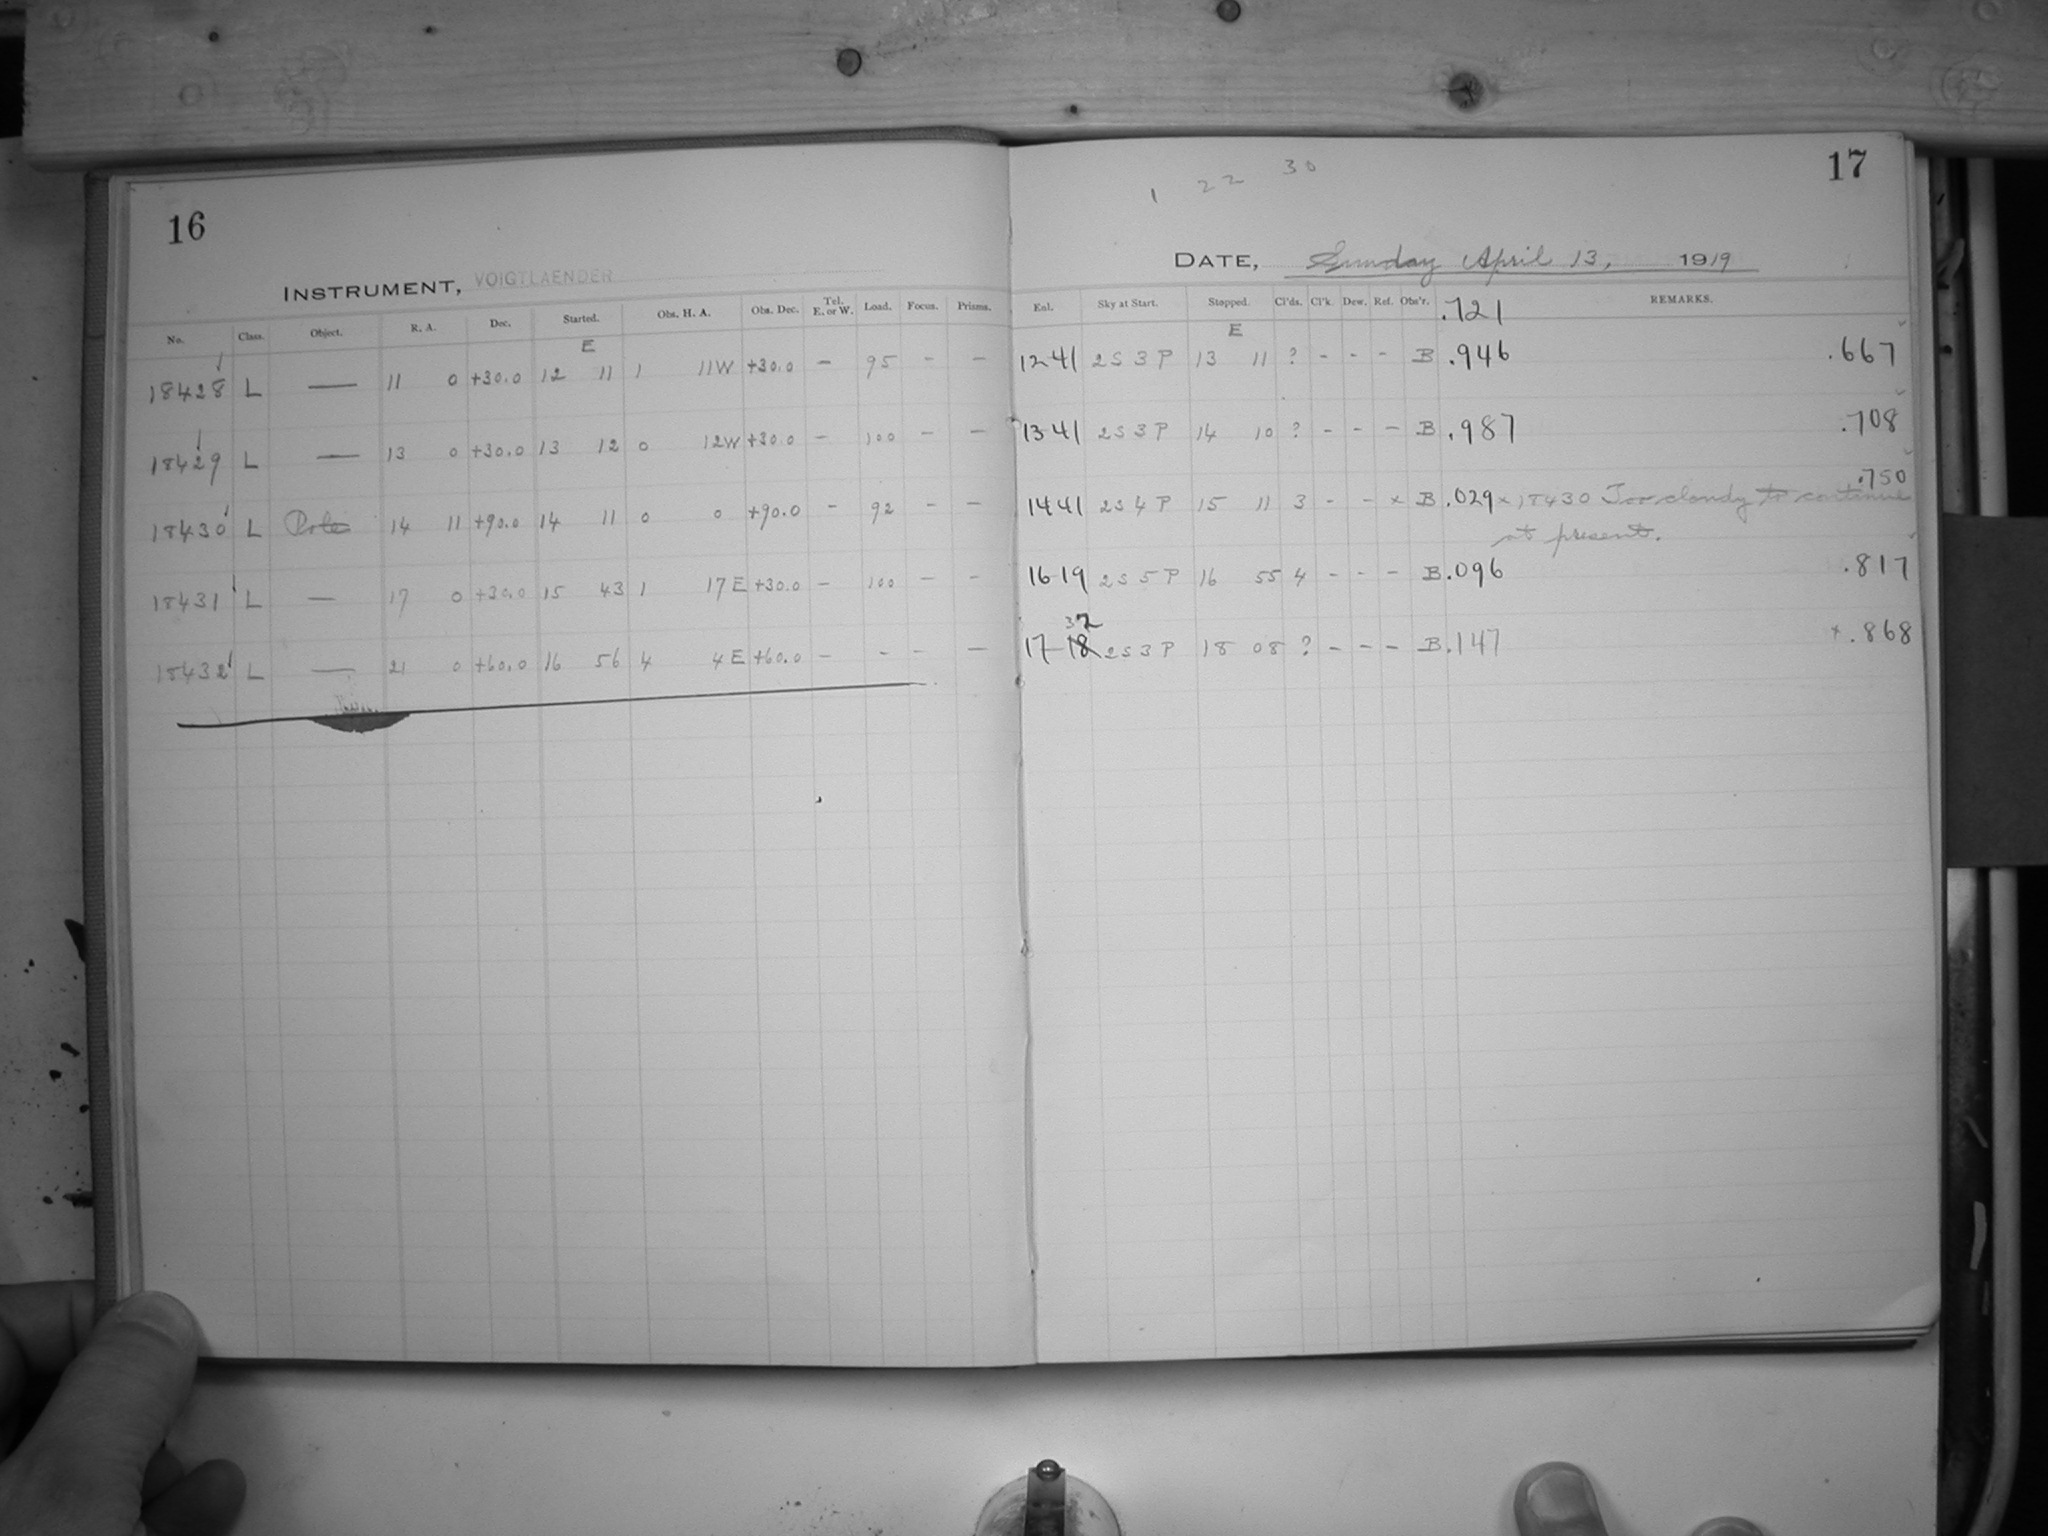 16
INSTRUMENT, VOIGTLAENDER
No. Class. Object. R. A. Dec. Started. Obs. H. A. Obs. Dec. Tel. E. or W. Load. Focus. Prisms.
E
18428 L — 11 0 +30.0 12 11 1 11W +30.0 - 95 - -
18429 L — 13 0 +30.0 13 12 0 12W +30.0 - 100 - -
18430 L Pole 14 11 +90.0 14 11 0 0 +90.0 - 92 - -
18431 L — 17 0 +30.0 15 43 1 17 E +30.0 - 100 - -
18432 L — 21 0 +60.0 16 56 4 4 E +60.0 - - - -
17
1 22 30
DATE, Sunday April 13, 1919
Enl. Sky at Start. Stopped. Cl'ds. Cl'k. Dew. Ref. Obs'r. .721 REMARKS.
E
12-41 2S 3 P 13 11 ? - - - B .946 .667
13-41 2S 3 P 14 10 ? - - - B .987 .708
.750
14-41 2S 4 P 15 11 3 - - x B .029 x 18430 Too cloudy to continue
at present.
16-19 2S 5 P 16 55 4 - - - B .096 .817
32
17-18 2S 3 P 18 08 ? - - - B .147 x .868